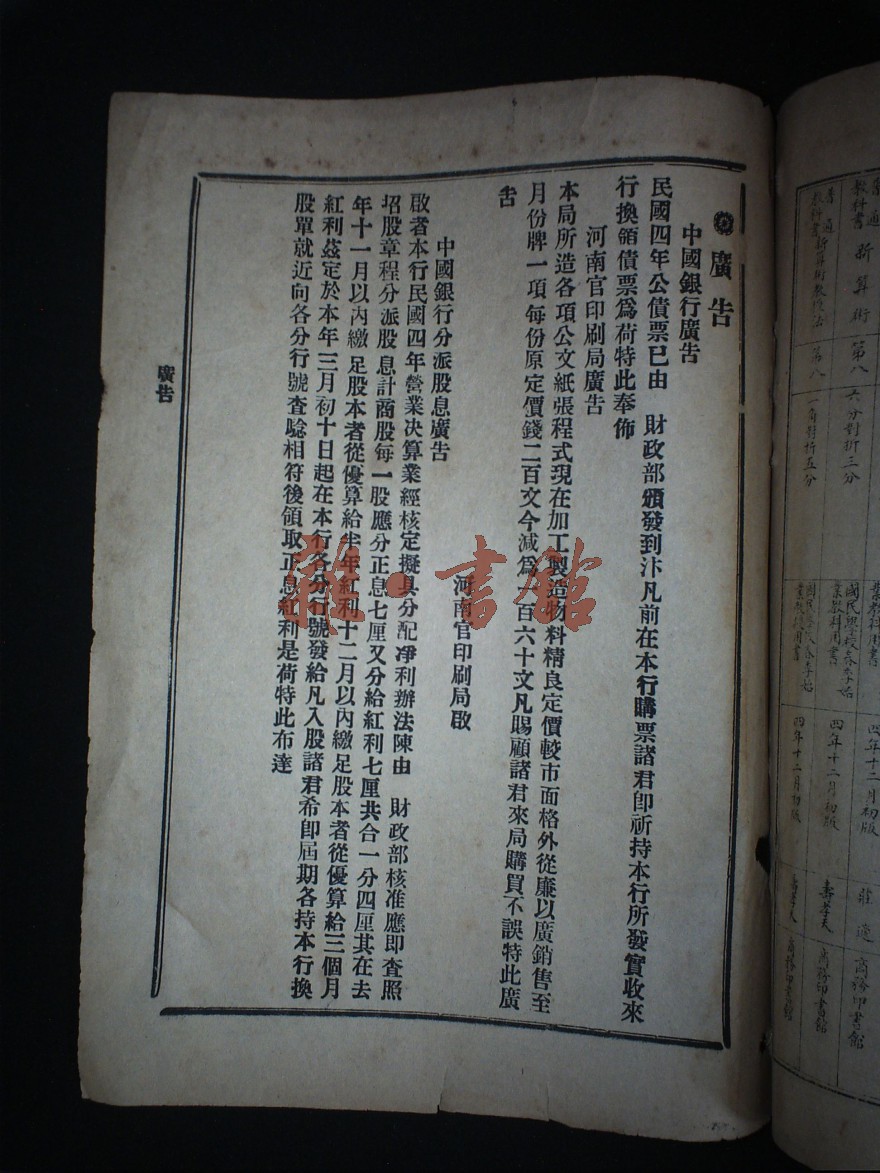 廣告
中國銀行廣告
民國四年公債票已由　財政部頒發到汴凡前在本行購票諸君卽祈持本行所發實收來
行換領債票爲荷特此奉佈
河南官印刷局廣告
本局所造各項公文紙張程式現在加工製造物料精良定價較市面格外從廉以廣銷售至
月份牌一項每份原定價錢二百文今減爲一百六十文凡賜顧諸君來局購買不誤特此廣
告
河南官印刷局啟
中國銀行分派股息廣告
啟者本行民國四年營業決算業經核定擬具分配淨利辦法陳由　財政部核准應即查照
招股章程分派股息計商股每一股應分正息七厘又分給紅利七厘共合一分四厘其在去
年十一月以內繳足股本者從優算給半年紅利十二月以內繳足股本者從優算給三個月
紅利茲定於本年三月初十日起在本行各分行號發給凡入股諸君希卽屆期各持本行換
股單就近向各分行號查驗相符後領取正息紅利是荷特此布達
廣告
雅書館
教科書 新算術 第八 六分對折三分 國民學校春季始業教科用書 四年十二月初版 莊適 商務印書館
普通教科書新算術教授法 第八 一角對折五分 四年十二月初版 壽孝天 商務印書館